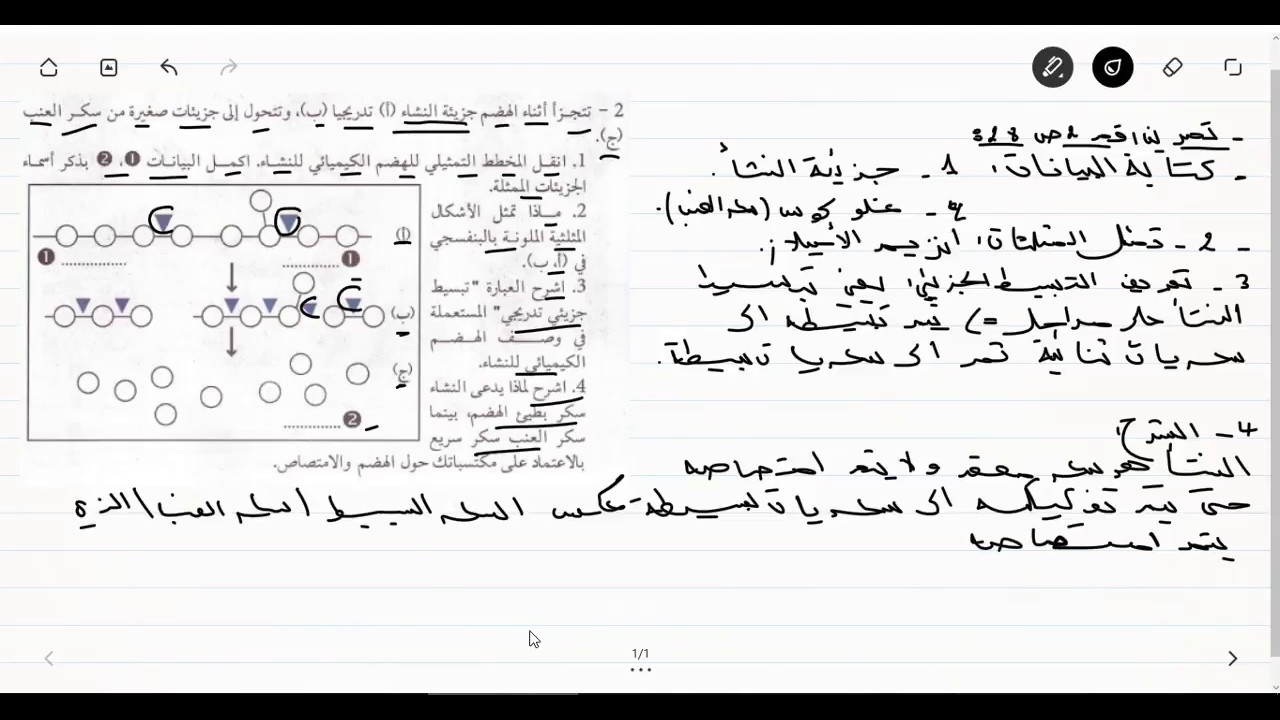 2 - تتجزأ أثناء الهضم جزيئة النشاء (أ) تدريجيا (ب)، وتتحول إلى جزيئات صغيرة من سكر العنب
(ج).
1. انقل المخطط التمثيلي للهضم الكيميائي للنشاء. اكمل البيانات ❶، ❷ بذكر أسماء
الجزيئات الممثلة.
2. ماذا تمثل الأشكال
المثلثية الملونة بالبنفسجي
في (أ، ب).
3. اشرح العبارة "تبسيط
جزيئي تدريجي" المستعملة
في وصف الهضم
الكيميائي للنشاء.
4. اشرح لماذا يدعى النشاء
سكر بطيئ الهضم، بينما
سكر العنب سكر سريع
بالاعتماد على مكتسباتك حول الهضم والامتصاص.
(أ)
❶ .............. ❶ ..............
(ب)
(ج)
❷ ..............
- تصرين رقم 2 ص 28:
- كتابة البيانات: 1 - جزيئة النشأ.
2 - غلوكوس (سكر العنب).
- 2 - تمثل المثلثات: انزيم الأميلاز.
3 - تعريف التبسيط الجزيئي: يعني تبسيط
النشأ على مراحل => يتم تبسيطه الى
سكريات ثنائية ثم الى سكريات بسيطة.
4 - الشرح:
النشأ هو سكر معقد ولا يتم امتصاصه
حتى يتم تفكيكه الى سكريات بسيطة عكس السكر البسيط (سكر العنب) الذي
يتم امتصاصه
1/1